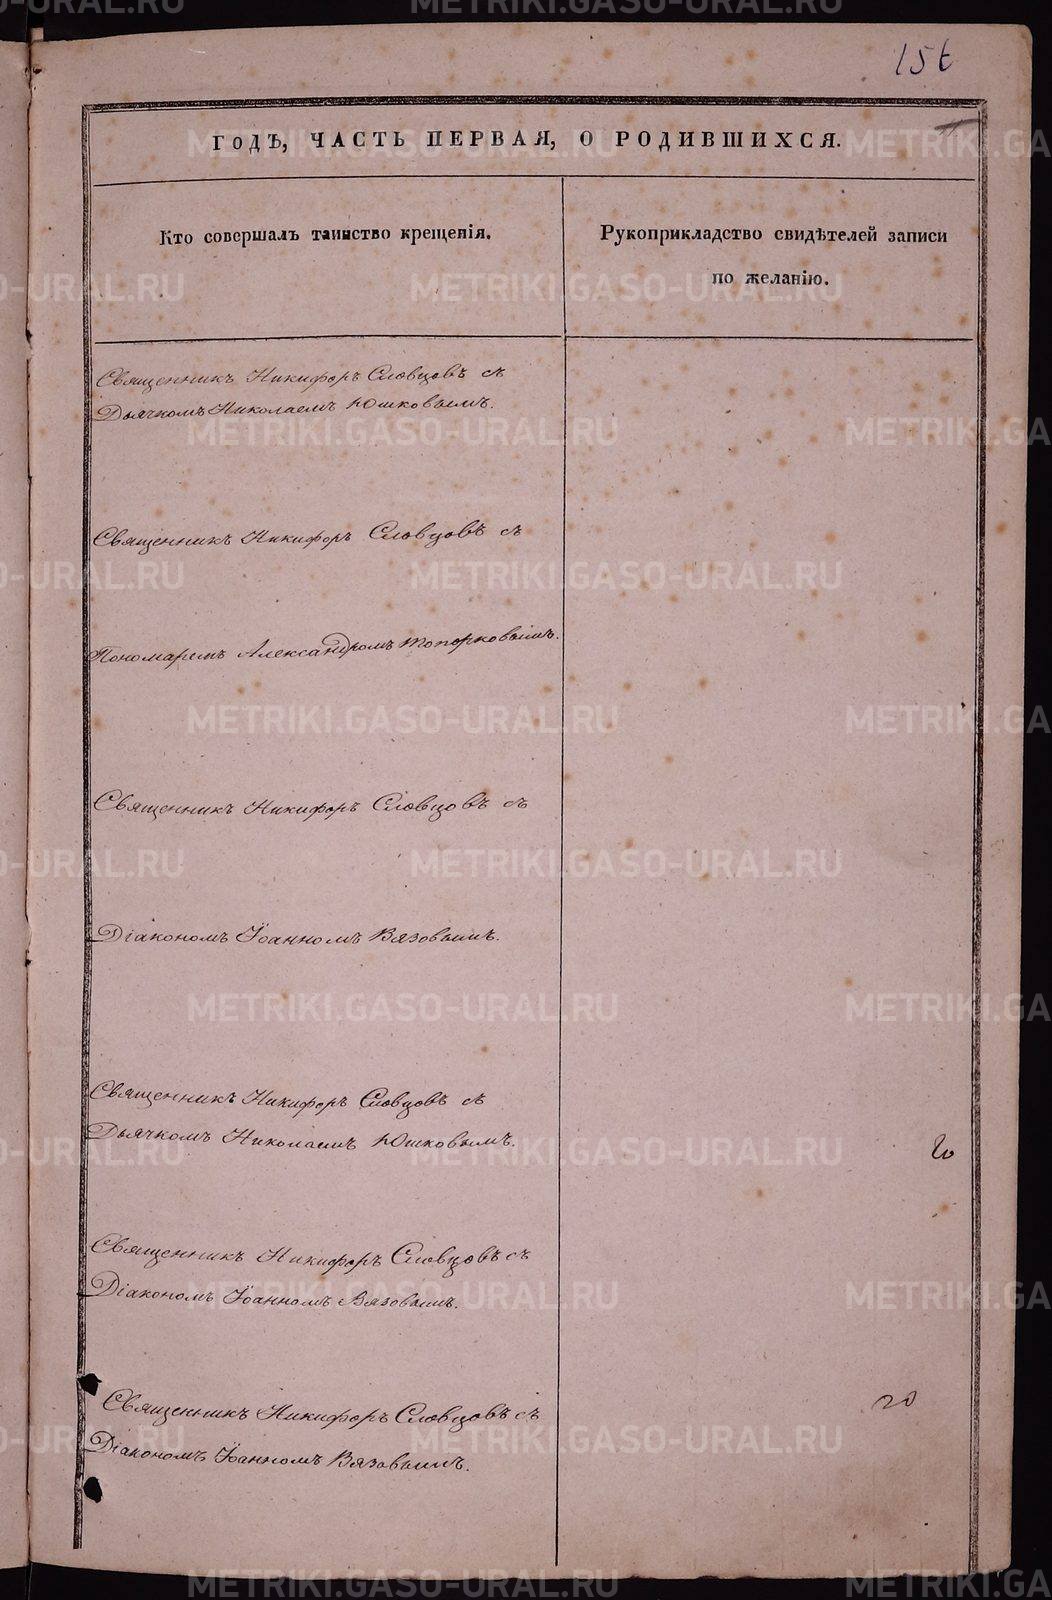 156
ГОДЪ, ЧАСТЬ ПЕРВАЯ, О РОДИВШИХСЯ.
Кто совершалъ таинство крещенія.
Рукоприкладство свидѣтелей записи
по желанію.
Священникъ Никифоръ Словцовъ съ
Дьячкомъ Николаемъ Юшковымъ.
Священникъ Никифоръ Словцовъ съ
Пономаремъ Александромъ Топорковымъ.
Священникъ Никифоръ Словцовъ съ
Діакономъ Іоанномъ Вязовымъ.
Священникъ Никифоръ Словцовъ съ
Дьячкомъ Николаемъ Юшковымъ.
20
Священникъ Никифоръ Словцовъ съ
Діакономъ Іоанномъ Вязовымъ.
Священникъ Никифоръ Словцовъ съ
20
Діакономъ Іоанномъ Вязовымъ.
METRIKI.GASO-URAL.RU